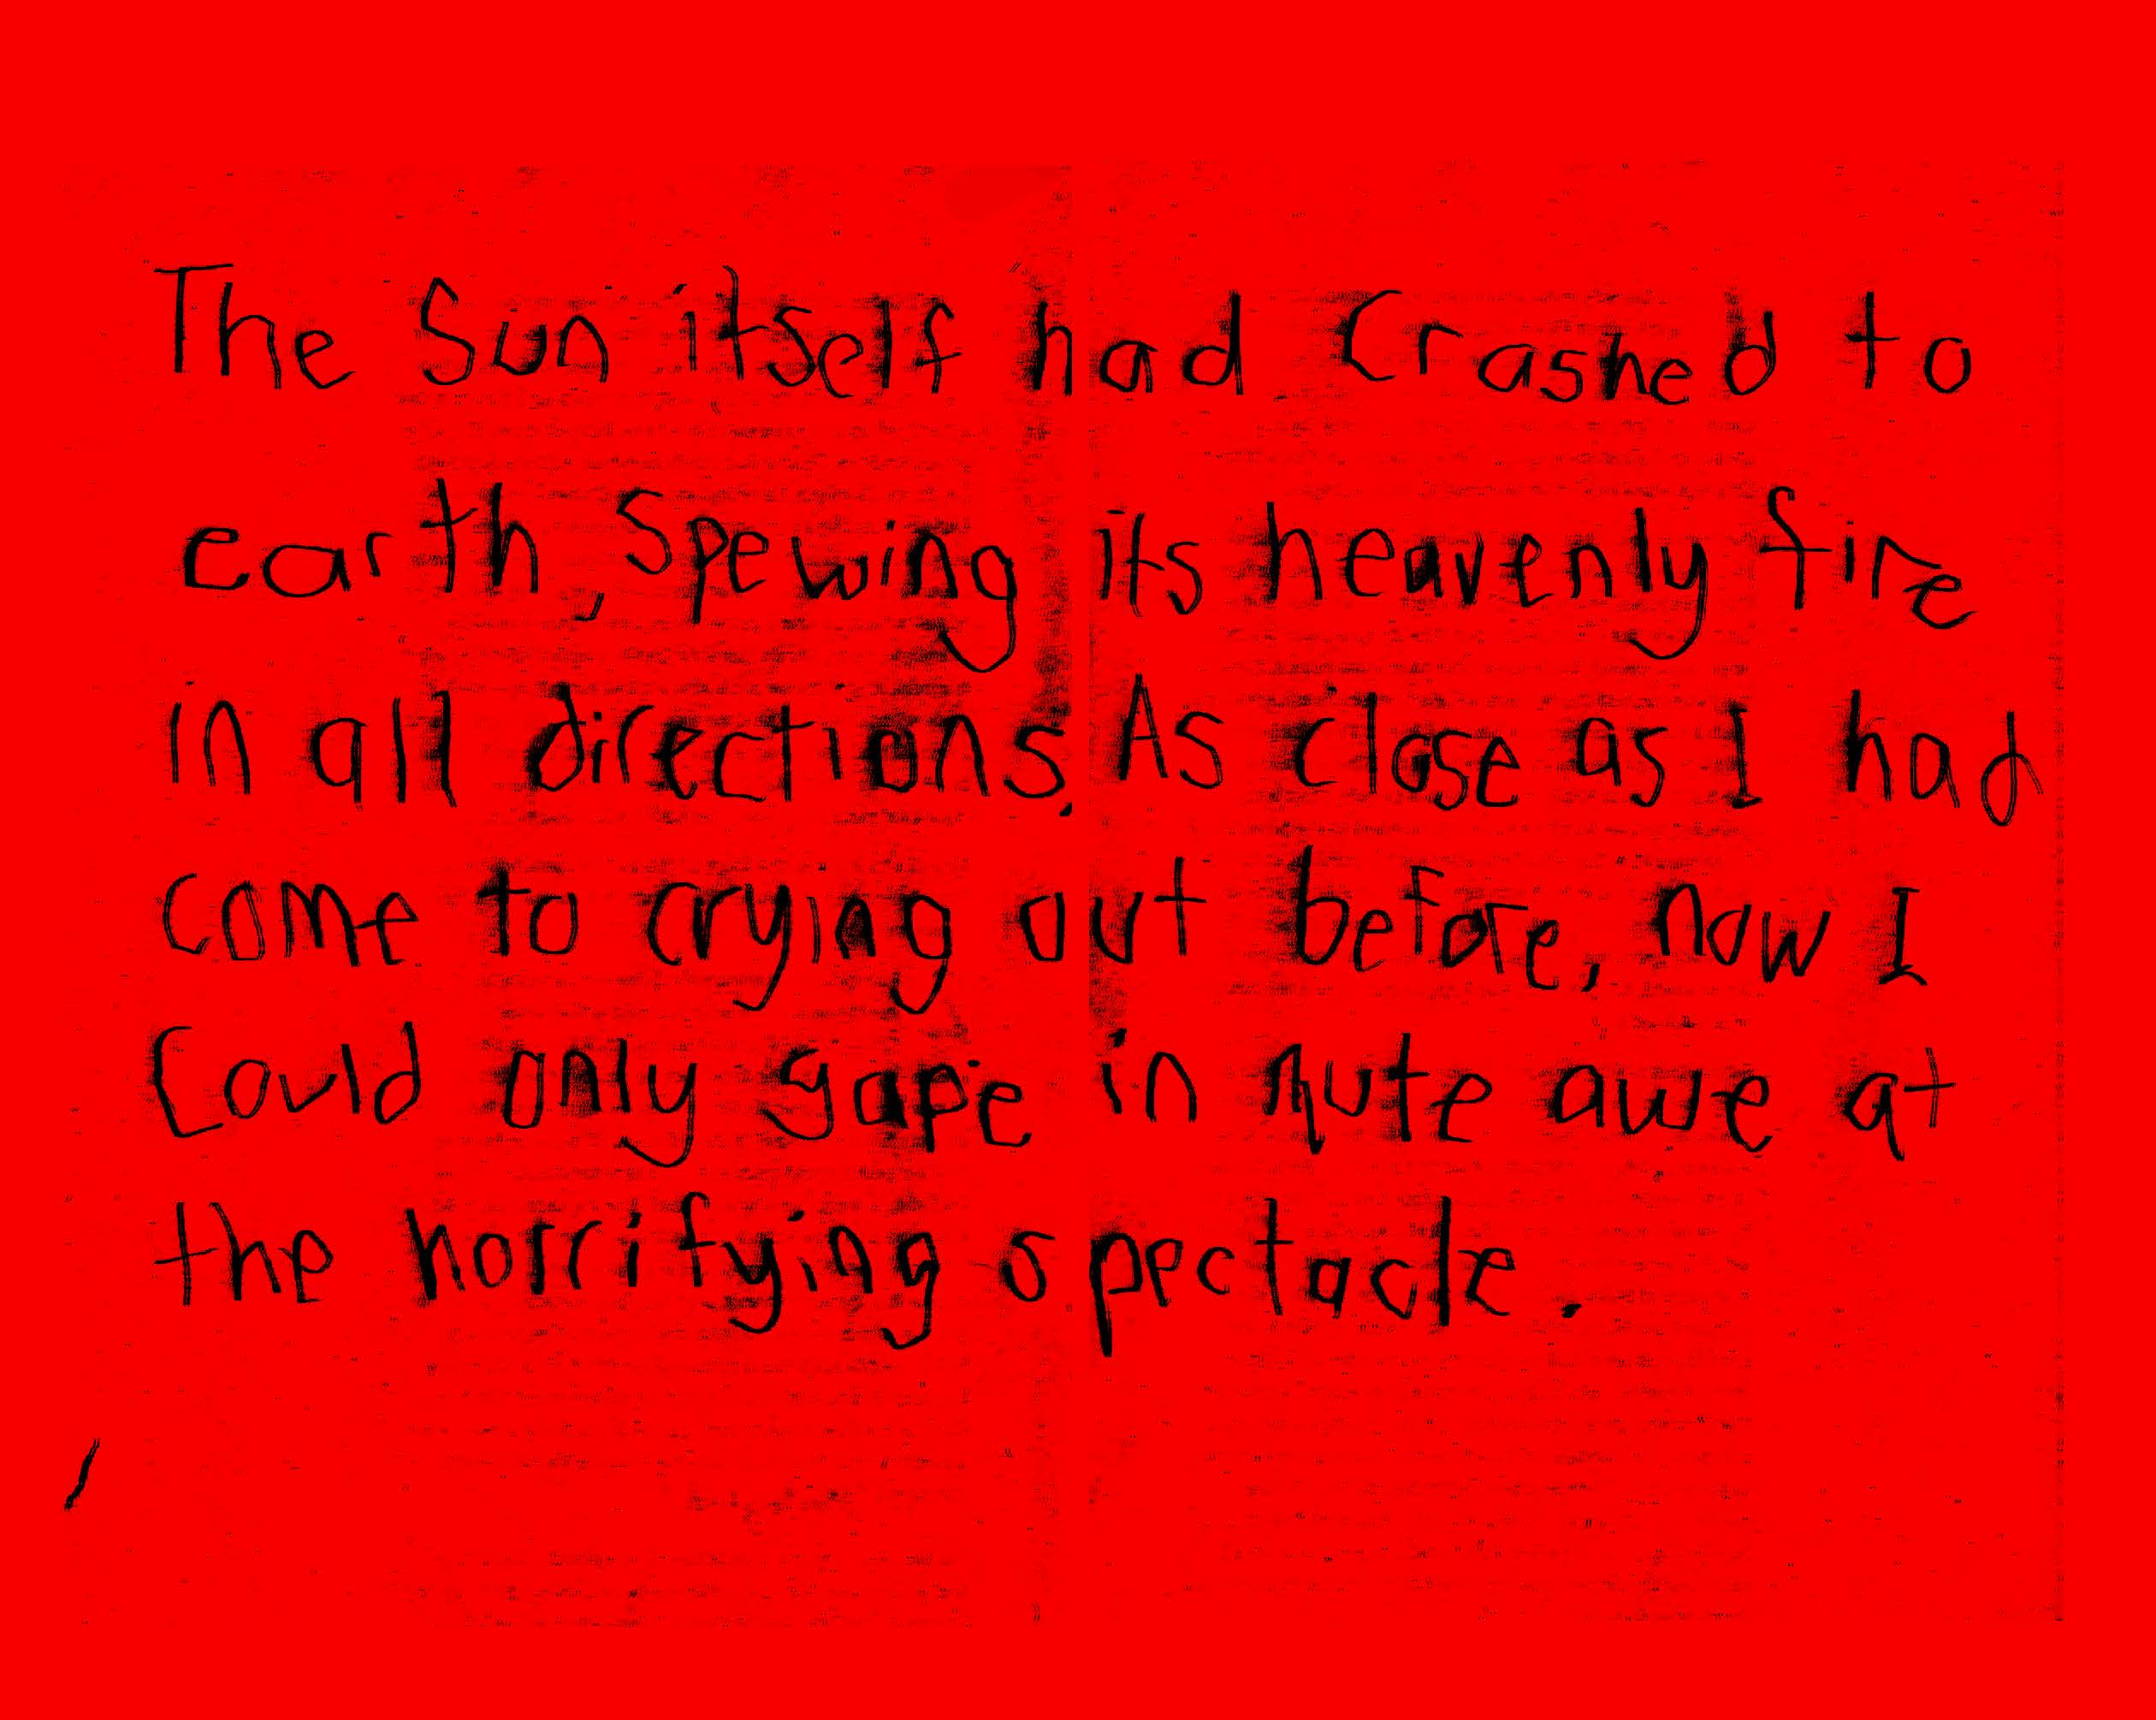 The Sun itself had Crashed to
earth, Spewing its heavenly fire
in all directions. As close as I had
come to crying out before, now I
Could only gape in mute awe at
the horrifying spectacle.